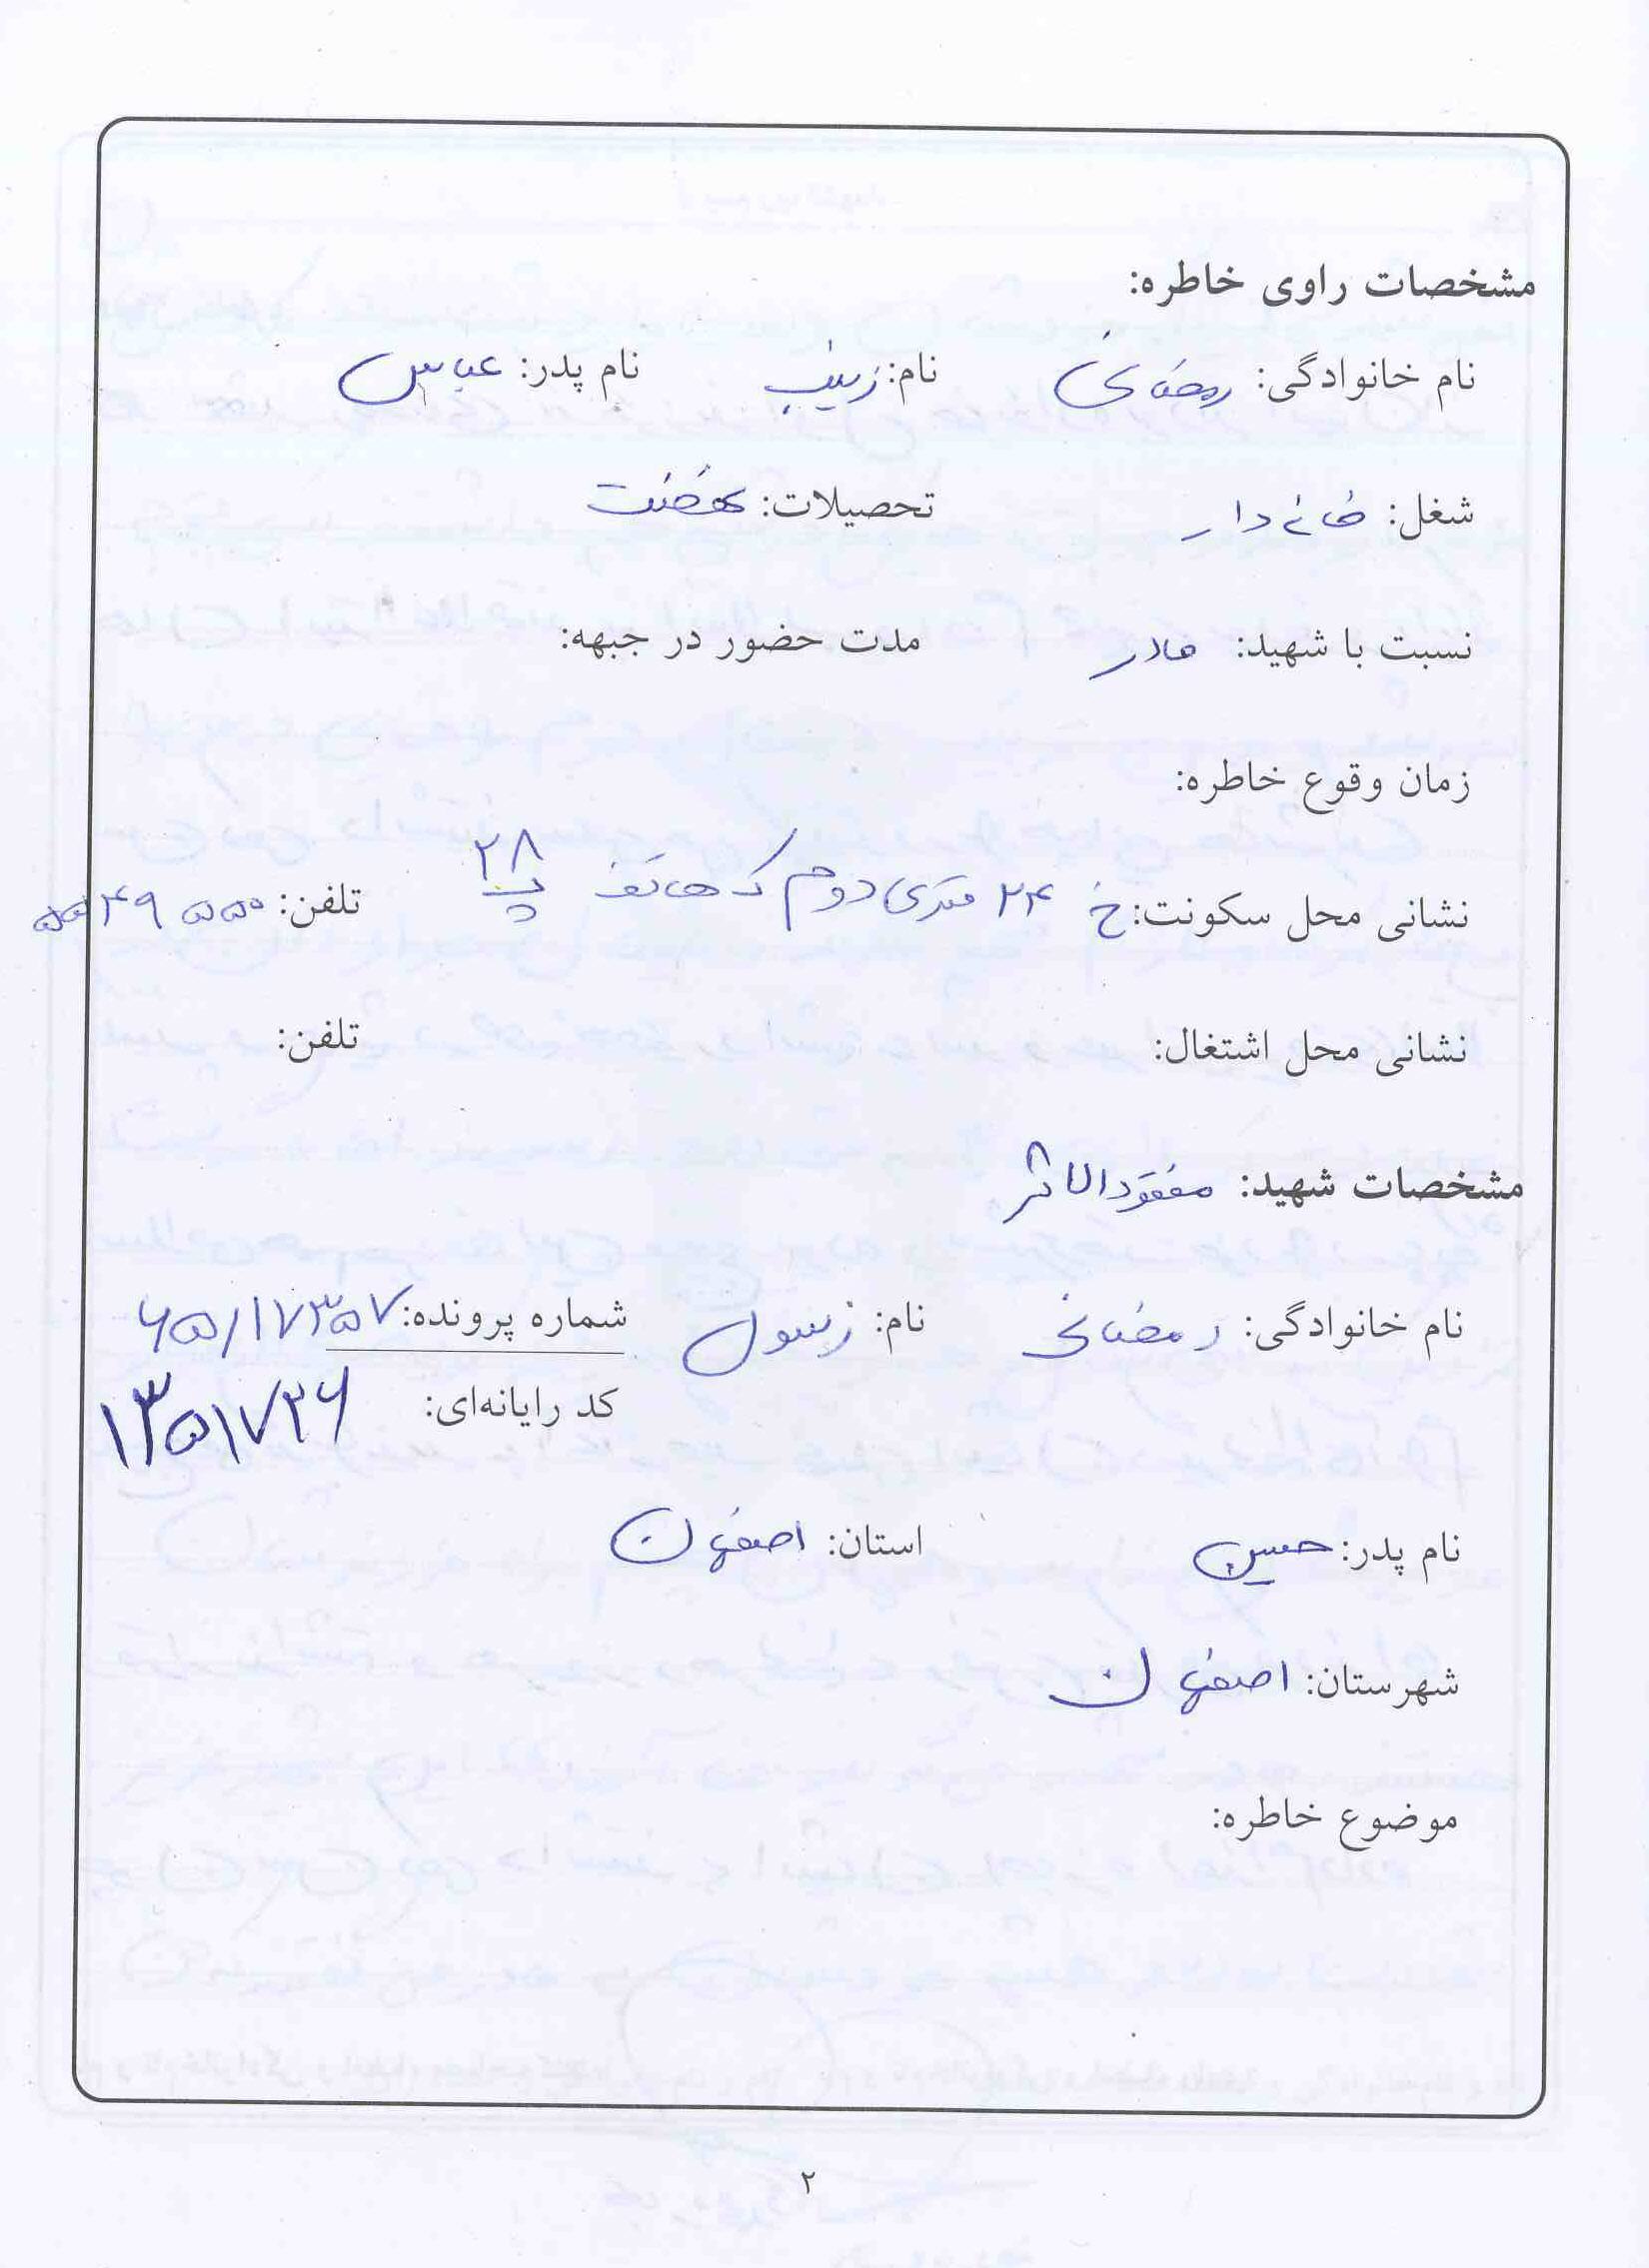 مشخصات راوی خاطره:
نام خانوادگی: رمضانی نام: زینب نام پدر: عباس
شغل: خانه دار تحصیلات: نهضت
نسبت با شهید: مادر مدت حضور در جبهه:
زمان وقوع خاطره:
نشانی محل سکونت: خ ۲۴ متری دوم ک هاتف پ ۲۸ تلفن:
نشانی محل اشتغال: تلفن:
مشخصات شهید: مفقودالاثر
نام خانوادگی: رمضانی نام: رسول شماره پرونده: ۶۵/۱۷۳۵۷
کد رایانه‌ای: ۱۳۵۱۷۲۶
نام پدر: حسین استان: اصفهان
شهرستان: اصفهان
موضوع خاطره:
۲